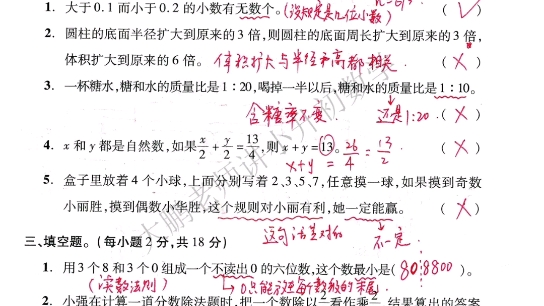 1. 大于0.1而小于0.2的小数有无数个。(没规定是几位小数) ( √ )
2. 圆柱的底面半径扩大到原来的3倍,则圆柱的底面周长扩大到原来的3倍,
体积扩大到原来的6倍。 体积扩大与半径和高都相关. ( × )
3. 一杯糖水,糖和水的质量比是1∶20,喝掉一半以后,糖和水的质量比是1∶10。
含糖率不变. 还是1:20. ( × )
4. x和y都是自然数,如果x/2+y/2=13/4,则x+y=13。 26/4=13/2 ( × )
x+y
5. 盒子里放着4个小球,上面分别写着2、3、5、7,任意摸一球,如果摸到奇数
小丽胜,摸到偶数小华胜,这个规则对小丽有利,她一定能赢。 ( × )
这句话是对的 不一定.
三、填空题。(每小题2分,共18分)
1. 用3个8和3个0组成一个不读出0的六位数,这个数最小是( 808800 )。
(读数法则) 0只能放在每个数级的末尾.
2. 小强在计算一道分数除法题时,把一个数除以二看作乘二,结果算出的答案
大鹏老师讲小升初数学